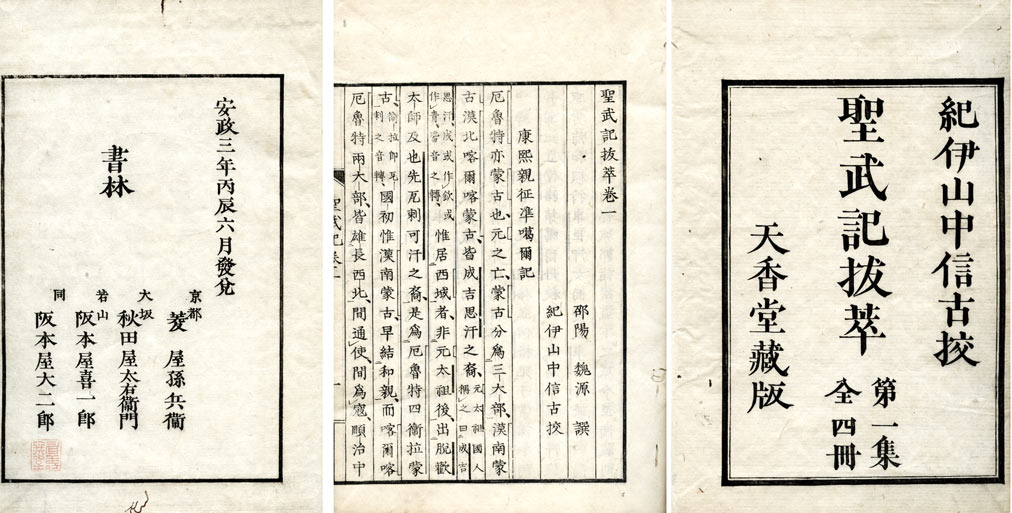 紀伊山中信古挍
聖武記拔萃 第一集 全四冊
天香堂藏版
聖武記拔萃卷一
邵陽 魏源 譔
紀伊山中信古挍
康熙親征準噶爾記
厄魯特亦蒙古也、元之亡、蒙古分爲三大部、漠南蒙
古漠北喀爾喀蒙古、皆成吉思汗之裔、元太祖國人稱之曰成吉
思汗、成或作欽、或作青、皆音之轉、惟居西域者、非元太祖後、出脫歡
太師及也先瓦剌可汗之裔、是爲厄魯特四衞拉蒙
古、衞拉卽瓦剌之音轉、國初惟漠南蒙古、早結和親、而喀爾喀
厄魯特兩大部、皆雄長西北、間通使、間爲寇、順治中
聖武記卷一
一
安政三年丙辰六月發兌
京都 菱屋孫兵衞
大坂 秋田屋太右衞門
若山 阪本屋喜一郎
同 阪本屋大二郎
書林